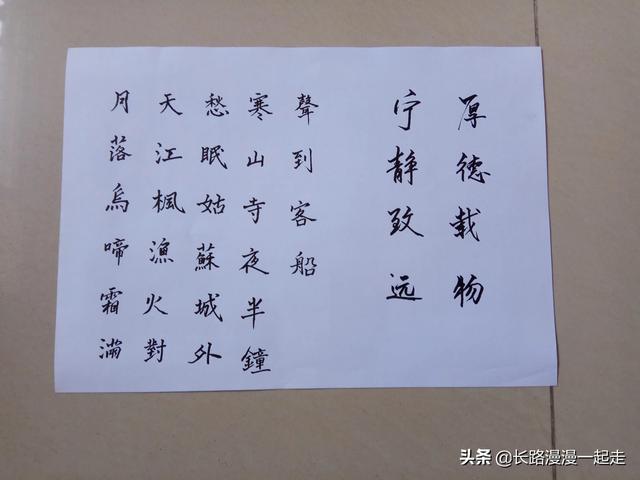 厚德载物
宁静致远
月落烏啼霜滿
天江楓漁火對
愁眠姑蘇城外
寒山寺夜半鐘
聲到客船
头条 @长路漫漫一起走